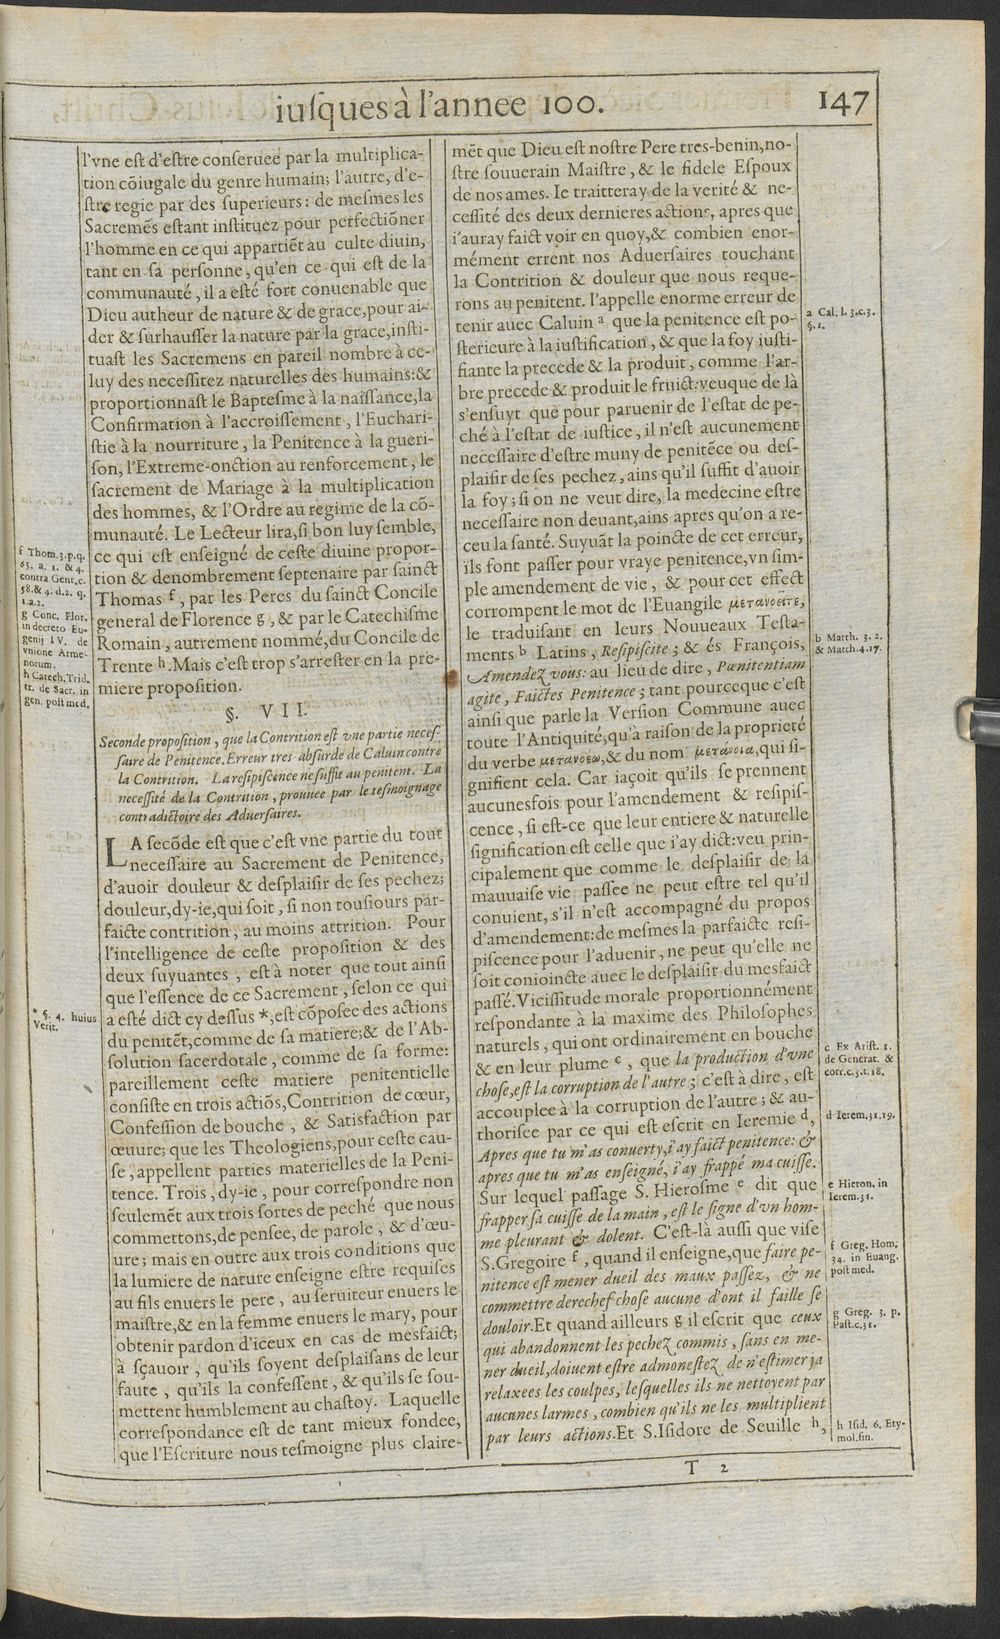 iusques à l'annee 100.
147
l'vne est d'estre conseruee par la multiplica-
tion cõiugale du genre humain; l'autre, d'e-
stre regie par des superieurs: de mesmes les
Sacremẽs estant instituez pour perfectiõner
l'homme en ce qui appartiẽt au culte diuin,
tant en sa personne, qu'en ce qui est de la
communauté, il a esté fort conuenable que
Dieu autheur de nature & de grace, pour ai-
der & surhausser la nature par la grace, insti-
tuast les Sacremens en pareil nombre à ce-
luy des necessitez naturelles des humains:&
proportionnast le Baptesme à la naissance, la
Confirmation à l'accroissement, l'Euchari-
stie à la nourriture, la Penitence à la gueri-
son, l'Extreme-onction au renforcement, le
sacrement de Mariage à la multiplication
des hommes, & l'Ordre au regime de la cõ-
munauté. Le Lecteur lira, si bon luy semble,
ce qui est enseigné de ceste diuine propor-
tion & denombrement septenaire par sainct
Thomas f, par les Peres du sainct Concile
general de Florence g, & par le Catechisme
Romain, autrement nommé, du Concile de
Trente h. Mais c'est trop s'arrester en la pre-
miere proposition.
§. VII.
Seconde proposition, que la Contrition est vne partie neces-
saire de Penitence. Erreur tres-absurde de Caluin contre
la Contrition. La resipiscence ne suffit au penitent. La
necessité de la Contrition, prouuee par le tesmoignage
contradictoire des Aduersaires.
LA secõde est que c'est vne partie du tout
necessaire au Sacrement de Penitence,
d'auoir douleur & desplaisir de ses pechez;
douleur, dy-ie, qui soit, si non tousiours par-
faicte contrition, au moins attrition. Pour
l'intelligence de ceste proposition & des
deux suyuantes, est à noter que tout ainsi
que l'essence de ce Sacrement, selon ce qui
a esté dict cy dessus *, est cõposee des actions
du penitẽt, comme de sa matiere;& de l'Ab-
solution sacerdotale, comme de sa forme:
pareillement ceste matiere penitentielle
consiste en trois actiõs, Contrition de cœur,
Confession de bouche, & Satisfaction par
œuure; que les Theologiens, pour ceste cau-
se, appellent parties materielles de la Peni-
tence. Trois, dy-ie, pour correspondre non
seulemẽt aux trois sortes de peché que nous
commettons, de pensee, de parole, & d'œu-
ure; mais en outre aux trois conditions que
la lumiere de nature enseigne estre requises
au fils enuers le pere, au seruiteur enuers le
maistre,& en la femme enuers le mary, pour
obtenir pardon d'iceux en cas de mesfaict;
à sçauoir, qu'ils soyent desplaisans de leur
faute, qu'ils la confessent, & qu'ils se sou-
mettent humblement au chastoy. Laquelle
correspondance est de tant mieux fondee,
que l'Escriture nous tesmoigne plus claire-
f Thom. 3. p. q.
65. a. 1. & 4.
contra Gent. c.
58. & 4. d. 2. q.
1. a. 2.
g Conc. Flor.
in decreto Eu-
genij IV. de
vnione Arme-
norum.
h Catech. Trid.
tt. de Sacr. in
gen. post med.
* §. 4. huius
Verit.
mẽt que Dieu est nostre Pere tres-benin, no-
stre souuerain Maistre, & le fidele Espoux
de nos ames. Ie traitteray de la verité & ne-
cessité des deux dernieres actions, apres que
i'auray faict voir en quoy,& combien enor-
mément errent nos Aduersaires touchant
la Contrition & douleur que nous reque-
rons au penitent. I'appelle enorme erreur de
tenir auec Caluin a que la penitence est po-
sterieure à la iustification, & que la foy iusti-
fiante la precede & la produit, comme l'ar-
bre precede & produit le fruict: veuque de là
s'ensuyt que pour paruenir de l'estat de pe-
ché à l'estat de iustice, il n'est aucunement
necessaire d'estre muny de penitẽce ou des-
plaisir de ses pechez, ains qu'il suffit d'auoir
la foy; si on ne veut dire, la medecine estre
necessaire non deuant, ains apres qu'on a re-
ceu la santé. Suyuãt la poincte de cet erreur,
ils font passer pour vraye penitence, vn sim-
ple amendement de vie, & pour cet effect
corrompent le mot de l'Euangile μετανοεῖτε,
le traduisant en leurs Nouueaux Testa-
ments b Latins, Resipiscite; & és François,
Amendez vous: au lieu de dire, Pœnitentiam
agite, Faictes Penitence; tant pource que c'est
ainsi que parle la Version Commune auec
toute l'Antiquité, qu'à raison de la proprieté
du verbe μετανοέω, & du nom μετάνοια, qui si-
gnifient cela. Car iaçoit qu'ils se prennent
aucunesfois pour l'amendement & resipis-
cence, si est-ce que leur entiere & naturelle
signification est celle que i'ay dict: veu prin-
cipalement que comme le desplaisir de la
mauuaise vie passee ne peut estre tel qu'il
conuient, s'il n'est accompagné du propos
d'amendement: de mesmes la parfaicte resi-
piscence pour l'aduenir, ne peut qu'elle ne
soit conioincte auec le desplaisir du mesfaict
passé. Vicissitude morale proportionnément
respondante à la maxime des Philosophes
naturels, qui ont ordinairement en bouche
& en leur plume c, que la production d'vne
chose, est la corruption de l'autre; c'est à dire, est
accouplee à la corruption de l'autre; & au-
thorisee par ce qui est escrit en Ieremie d,
Apres que tu m'as conuerty, i'ay faict penitence: &
apres que tu m'as enseigné, i'ay frappé ma cuisse.
Sur lequel passage S. Hierosme e dit que
frapper sa cuisse de la main, est le signe d'vn hom-
me pleurant & dolent. C'est-là aussi que vise
S. Gregoire f, quand il enseigne, que faire pe-
nitence est mener dueil des maux passez, & ne
commettre derechef chose aucune d'ont il faille se
douloir. Et quand ailleurs g il escrit que ceux
qui abandonnent les pechez commis, sans en me-
ner dueil, doiuent estre admonestez de n'estimer ja
relaxees les coulpes, lesquelles ils ne nettoyent par
aucunes larmes, combien qu'ils ne les multiplient
par leurs actions. Et S. Isidore de Seuille h,
a Cal. l. 3. c. 3.
§. 1.
b Matth. 3. 2.
& Matth. 4. 17.
c Ex Arist. 1.
de Generat. &
corr. c. 3. t. 18.
d Ierem. 31. 19.
e Hieron. in
Ierem. 31.
f Greg. Hom.
34. in Euang.
post med.
g Greg. 3. p.
Past. c. 31.
h Isid. 6. Ety-
mol. fin.
T 2